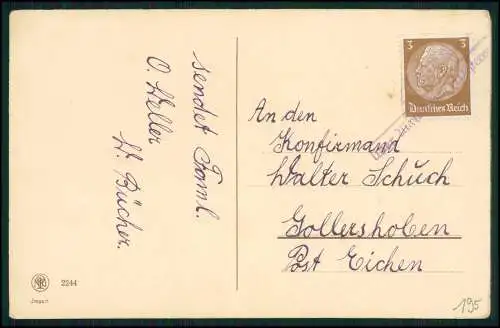 sendet Faml.
O. Weller
W. Bücher.
3 3
Deutsches Reich
An den
Konfirmand
Walter Schuch
Gollershoben
Post Eichen
2244
195